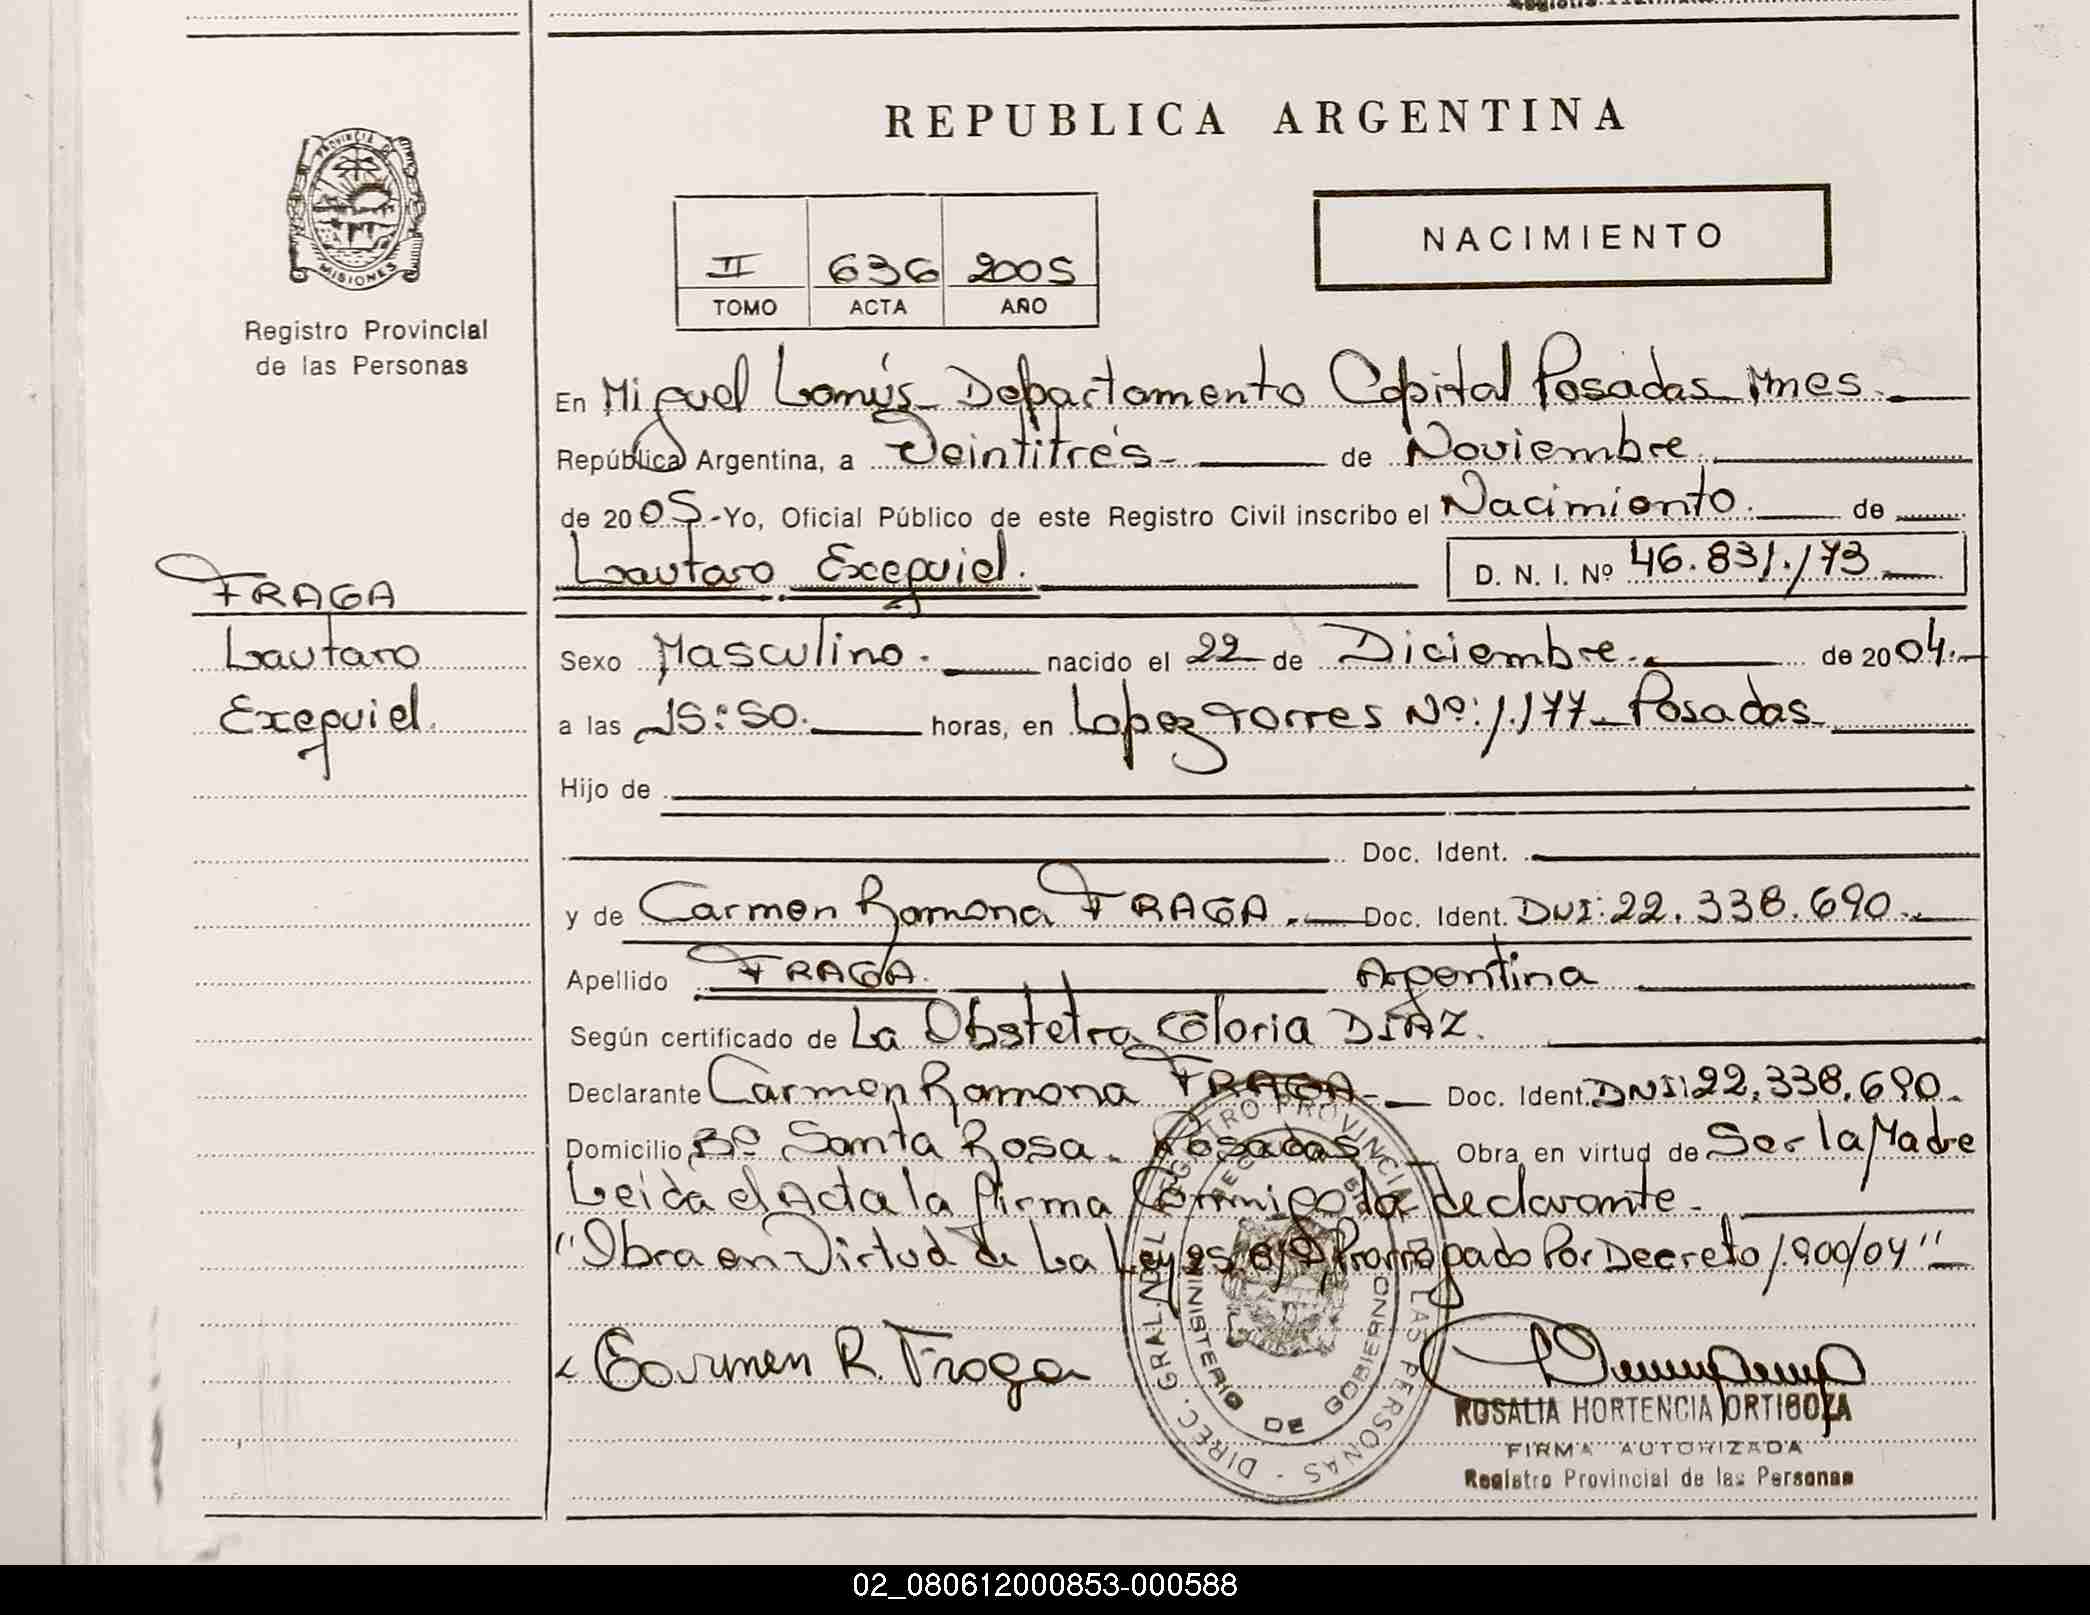 REPUBLICA ARGENTINA
PROVINCIA DE
MISIONES
Registro Provincial
de las Personas
II 636 2005
TOMO ACTA AÑO
NACIMIENTO
En Miguel Lanús - Departamento Capital Posadas - Mnes.
República Argentina, a Veintitrés - de Noviembre
de 2005 - Yo, Oficial Público de este Registro Civil inscribo el Nacimiento. de
Lautaro Exequiel. D. N. I. Nº 46.831.173
FRAGA
Lautaro
Exequiel.
Sexo Masculino. nacido el 22 de Diciembre. de 2004.
a las 15:50. horas, en Lopez Torres Nº: 1.177 - Posadas
Hijo de
Doc. Ident.
y de Carmen Ramona FRAGA. Doc. Ident. DNI: 22.338.690.
Apellido FRAGA. Argentina
Según certificado de La Obstetra Gloria DIAZ.
Declarante Carmen Ramona FRAGA - Doc. Ident. DNI: 22.338.690.
Domicilio Bº Santa Rosa. Posadas Obra en virtud de Ser la Madre
Leida el Acta la firma Conmigo la declarante -
"Obra en Virtud de La Ley Prorrogado Por Decreto 1.900/04"
Carmen R. Fraga
DIREC. GRAL. DEL REGISTRO PROVINCIAL DE LAS PERSONAS
MINISTERIO DE GOBIERNO
ROSALIA HORTENCIA ORTIGOZA
FIRMA AUTORIZADA
Registro Provincial de las Personas
02_080612000853-000588